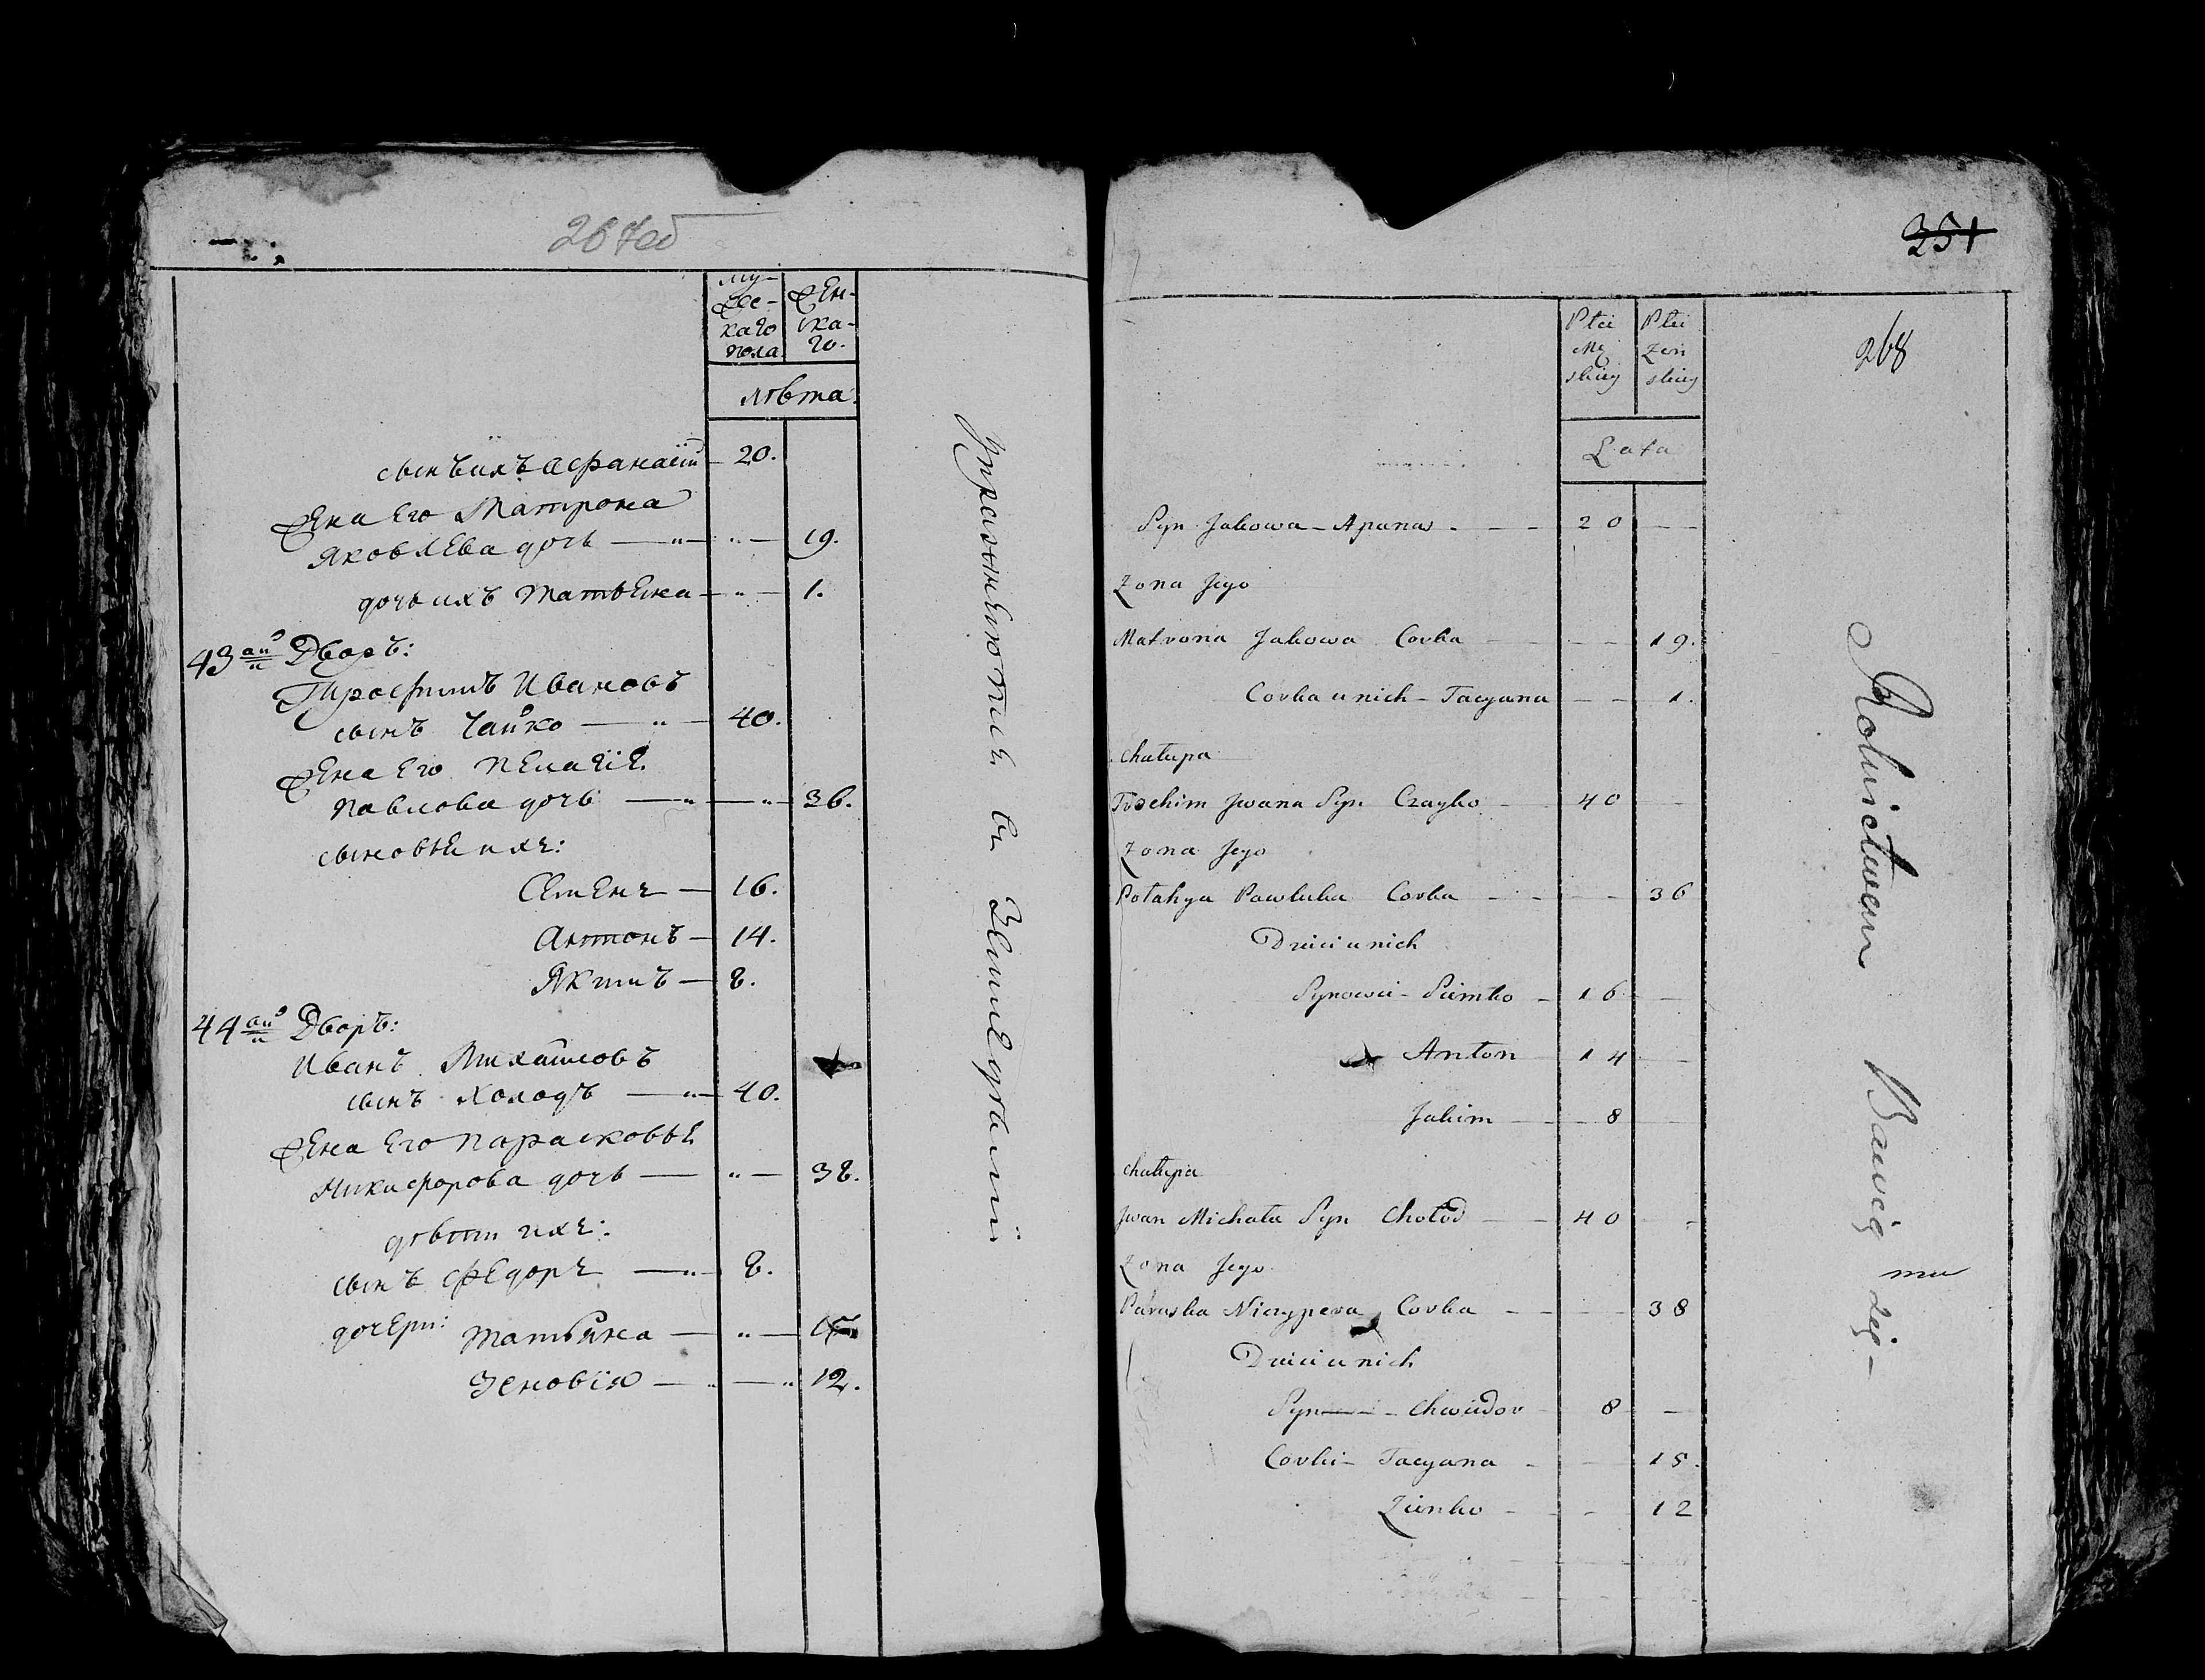 267об
Му-
жес-
каго
пола.
Жен-
ска-
го.
лѣта.
сынъ ихъ Афанасій — 20.
жена Его Матрона
Яковлева дочь — „ — „ — 19.
дочь ихъ Татьяна — „ — 1.
43ай Дворъ:
Трофимъ Ивановъ
сынъ Чайко — „ — 40.
жена Его Пелагіе
Павлова дочь — „ — „ — 36.
сыновья ихъ:
Семенъ — 16.
Антонъ — 14.
Якимъ — 8.
44ай Дворъ:
Иванъ Михайловъ
сынъ Холодъ — „ — 40.
жена Его Парасковье
Никифорова дочь — „ — 38.
дѣти ихъ:
сынъ Федоръ — „ — 8.
дочери: Татьяна — „ — 15
Зеновія — „ — „ 12.
Упражняются въ Земледѣліи
351
268
Płci
Mę
skiey
Płci
Żeń
skiey
Lata
Syn Jakowa - Apanas - - - 20 - -
Zona Jego
Matrona Jakowa Corka - - - 19.
Corka u nich - Tacyana - - 1.
Chałupa
Trochim Jwana Syn Czayko - 40 -
Zona Jego
Połahya Pawluka Corka - - - 36
Dzieci u nich
Synowie - Siemko - 16 -
Anton 14 -
Jakim - - 8 -
Chałupa
Jwan Michała Syn Chołod - - 40 - -
Zona Jego
Paraska Niczypera Corka - - - 38
Dzieci u nich
Syn - Chwiedor 8 -
Corki - Tacyana - - 15.
Zienko - - 12
Rolnictwem Bawią się -